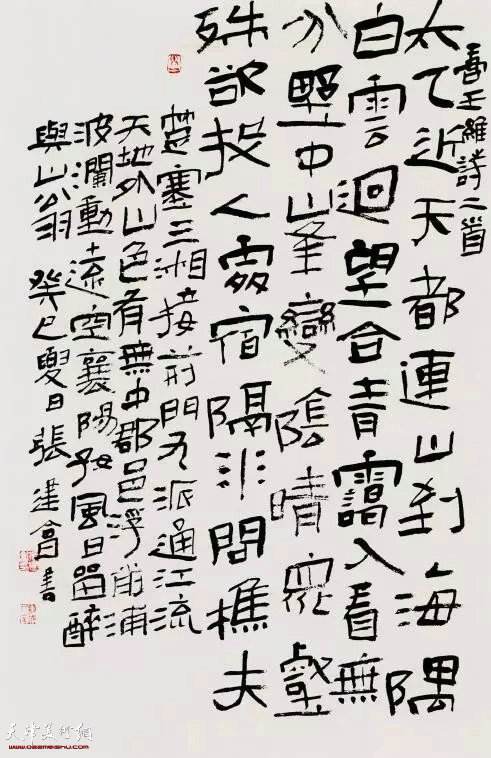 書王維詩二首
太乙近天都連山到海隅
白雲迴望合青靄入看無
分壄中峯變陰晴眾壑
殊欲投人處宿隔水問樵夫
楚塞三湘接荊門九派通江流
天地外山色有無中郡邑浮前浦
波瀾動遠空襄陽好風日留醉
與山翁 癸巳夏日張建會書
天津美術網